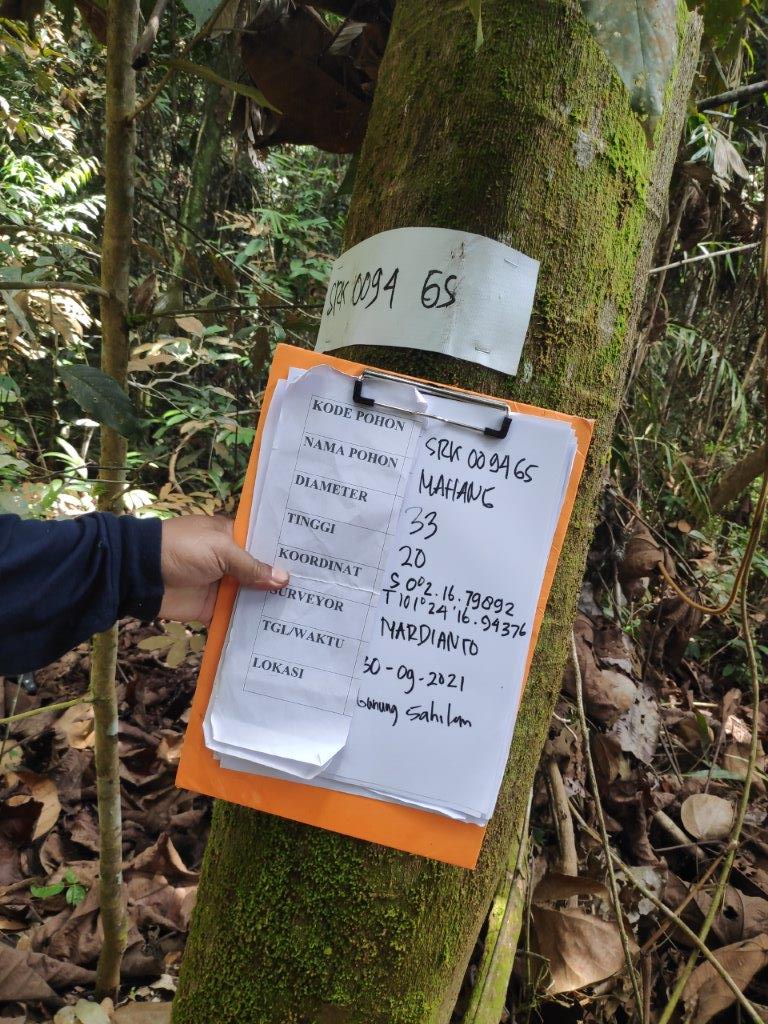 SRK 0094 65
KODE POHON SRK 0094 65
NAMA POHON MAHANG
DIAMETER 33
TINGGI 20
KOORDINAT S 0°2.16.79892
T 101°24'16.94376
SURVEYOR NARDIANTO
TGL/WAKTU 30-09-2021
LOKASI Gunung Sahilan